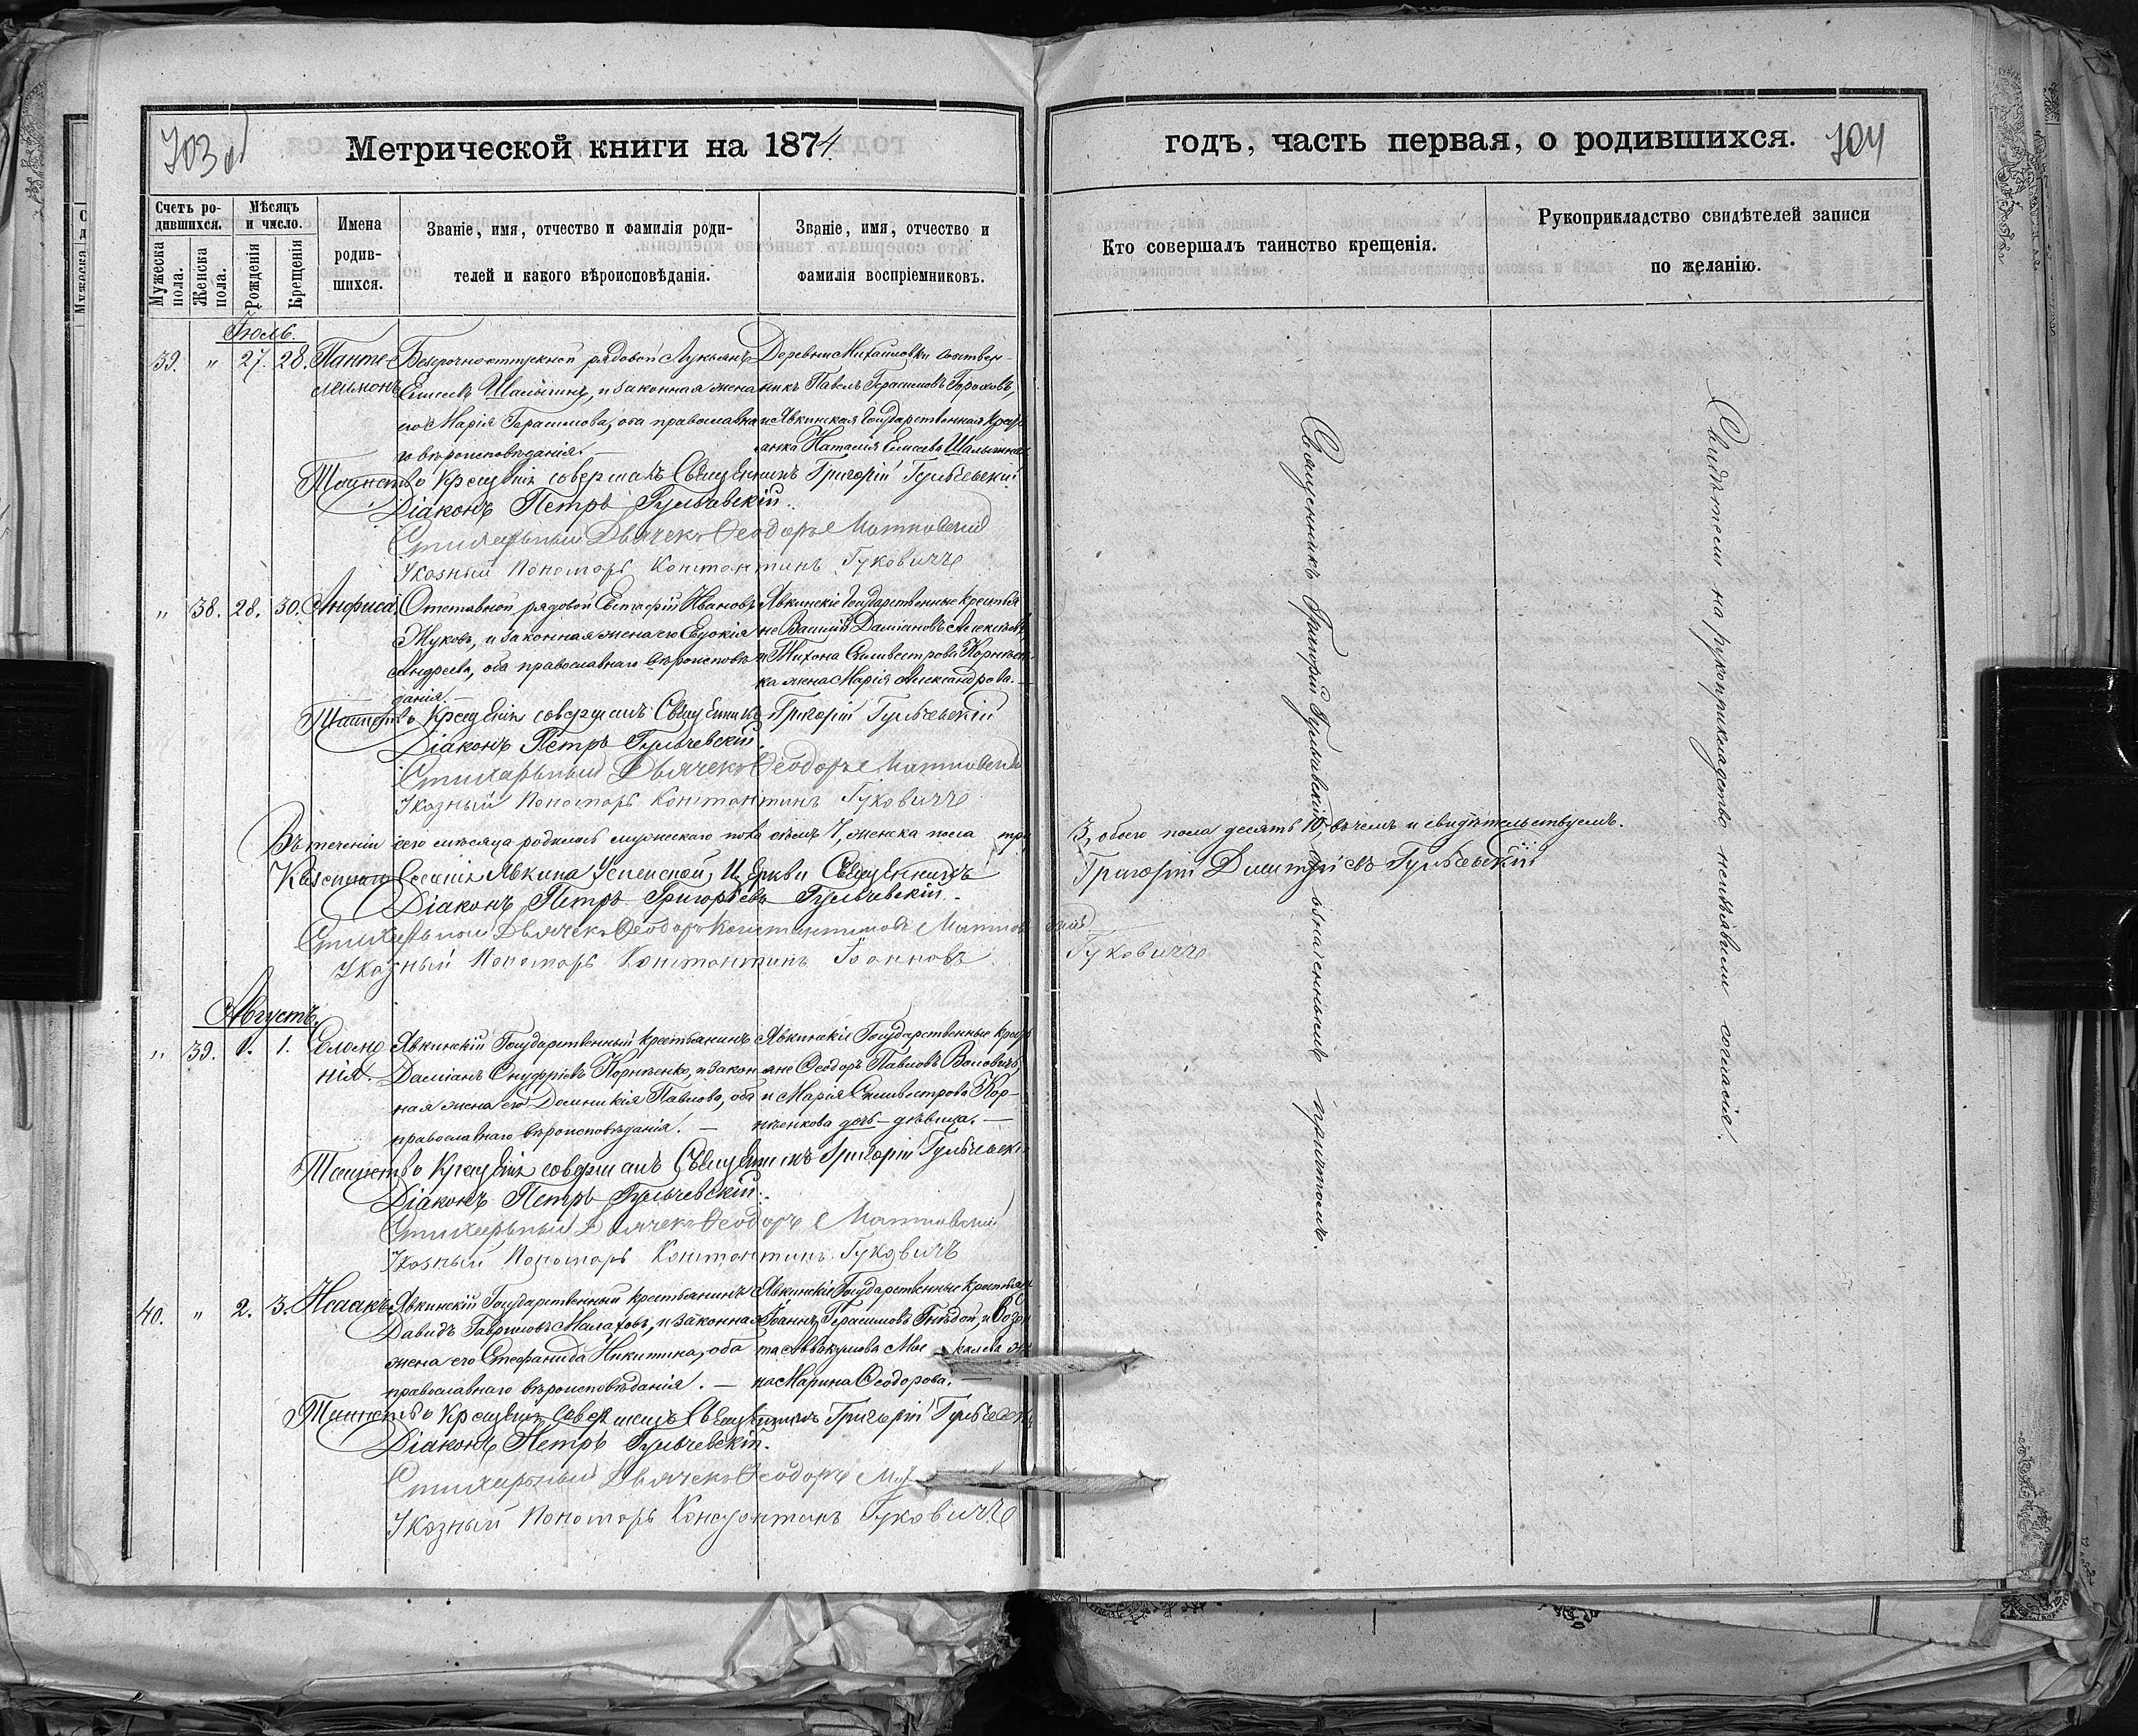 703 об
Метрической книги на 1874
Счетъ ро-
дившихся.
Мѣсяцъ
и число.
Мужеска
пола.
Женска
пола.
Рожденія
Крещенія
Имена
родив-
шихся.
Званіе, имя, отчество и фамилія роди-
телей и какого вѣроисповѣданія.
Званіе, имя, отчество и
фамилія воспріемниковъ.
Іюль.
39. " 27. 28. Панте-
леимонъ
Безсрочноотпускной рядовой Лукіанъ
Елисеевъ Шалыгинъ, и законная жена
его Марія Герасимова, оба православна-
го вѣроисповѣданія. —
Деревни Михайловки собствен-
никъ Павелъ Герасимовъ Гороховъ,
и Явкинская Государственная крестьянка
Наталія Елисеева Шалыгина
Таинство Крещенія совершалъ Священникъ Григорій Гульчевскій
Діаконъ Петръ Гульчевскій.
Стихарный Дьячекъ Ѳеодоръ Матковскій
Указный Пономарь Константинъ Гуковичъ
" 38. 28. 30. Анфиса.
Отставной рядовой Евстафій Ивановъ
Жуковъ, и законная жена его Евдокія
Андреева, оба православнаго вѣроисповѣ-
данія. —
Явкинскіе Государственные крестья-
не Василій Даміановъ
и Тихона Сильвестрова Корніен-
ка жена Марія Александрова. —
Таинство Крещенія совершалъ Священникъ Григорій Гульчевскій
Діаконъ Петръ Гульчевскій.
Стихарный Дьячекъ Ѳеодоръ Матковскій
Указный Пономарь Константинъ Гуковичъ
Въ теченіи сего мѣсяца родилось мужескаго пола семь 7, женска пола три
Казеннаго Селенія Явкина Успенской Церкви Священникъ
Діаконъ Петръ Григорьевъ Гульчевскій.
Стихарный Дьячекъ Ѳеодоръ Константиновъ Матков
Указный Пономарь Константинъ Іоанновъ
Августъ.
" 39. 1. 1. Соло­мо-
нія.
Явкинскій Государственный крестьянинъ
Даміанъ Онуфріевъ Корніенко, и закон-
ная жена его Домникія Павлова, оба
православнаго вѣроисповѣданія. —
Явкинскіе Государственные кресть-
яне Ѳеодоръ Павловъ Воловичъ,
и Марія Сильвестрова Кор-
ніенкова дочь - дѣвица. —
Таинство Крещенія совершалъ Священникъ Григорій Гульчевскій
Діаконъ Петръ Гульчевскій.
Стихарный Дьячекъ Ѳеодоръ Матковскій
Указный Пономарь Константинъ Гуковичъ
40. " 2. 3. Исаакъ
Явкинскій Государственный крестьянинъ
Давидъ Гавриловъ Малаховъ, и законная
жена его Стефанида Никитина, оба
православнаго вѣроисповѣданія. —
Явкинскіе Государственные крестьян
Іоаннъ Герасимовъ Гнѣдой, и
Аввакумова
на Марина Ѳеодорова. —
Таинство Крещенія совершалъ Священникъ Григорій Гульчевск
Діаконъ Петръ Гульчевскій.
Стихарный Дьячекъ Ѳеодоръ
Указный Пономарь Константинъ Гуковичъ
годъ, часть первая, о родившихся.
704
Кто совершалъ таинство крещенія.
Рукоприкладство свидѣтелей записи
по желанію.
Священникъ Григорій Гульчевскій, съ означеннымъ причтомъ.
Свидѣтели на рукоприкладство неизъявили согласія.
3, обоего пола десять 10, въ чемъ и свидѣтельствуемъ.
Григорій Димитріевъ Гульчевскій
скій
Гуковичъ